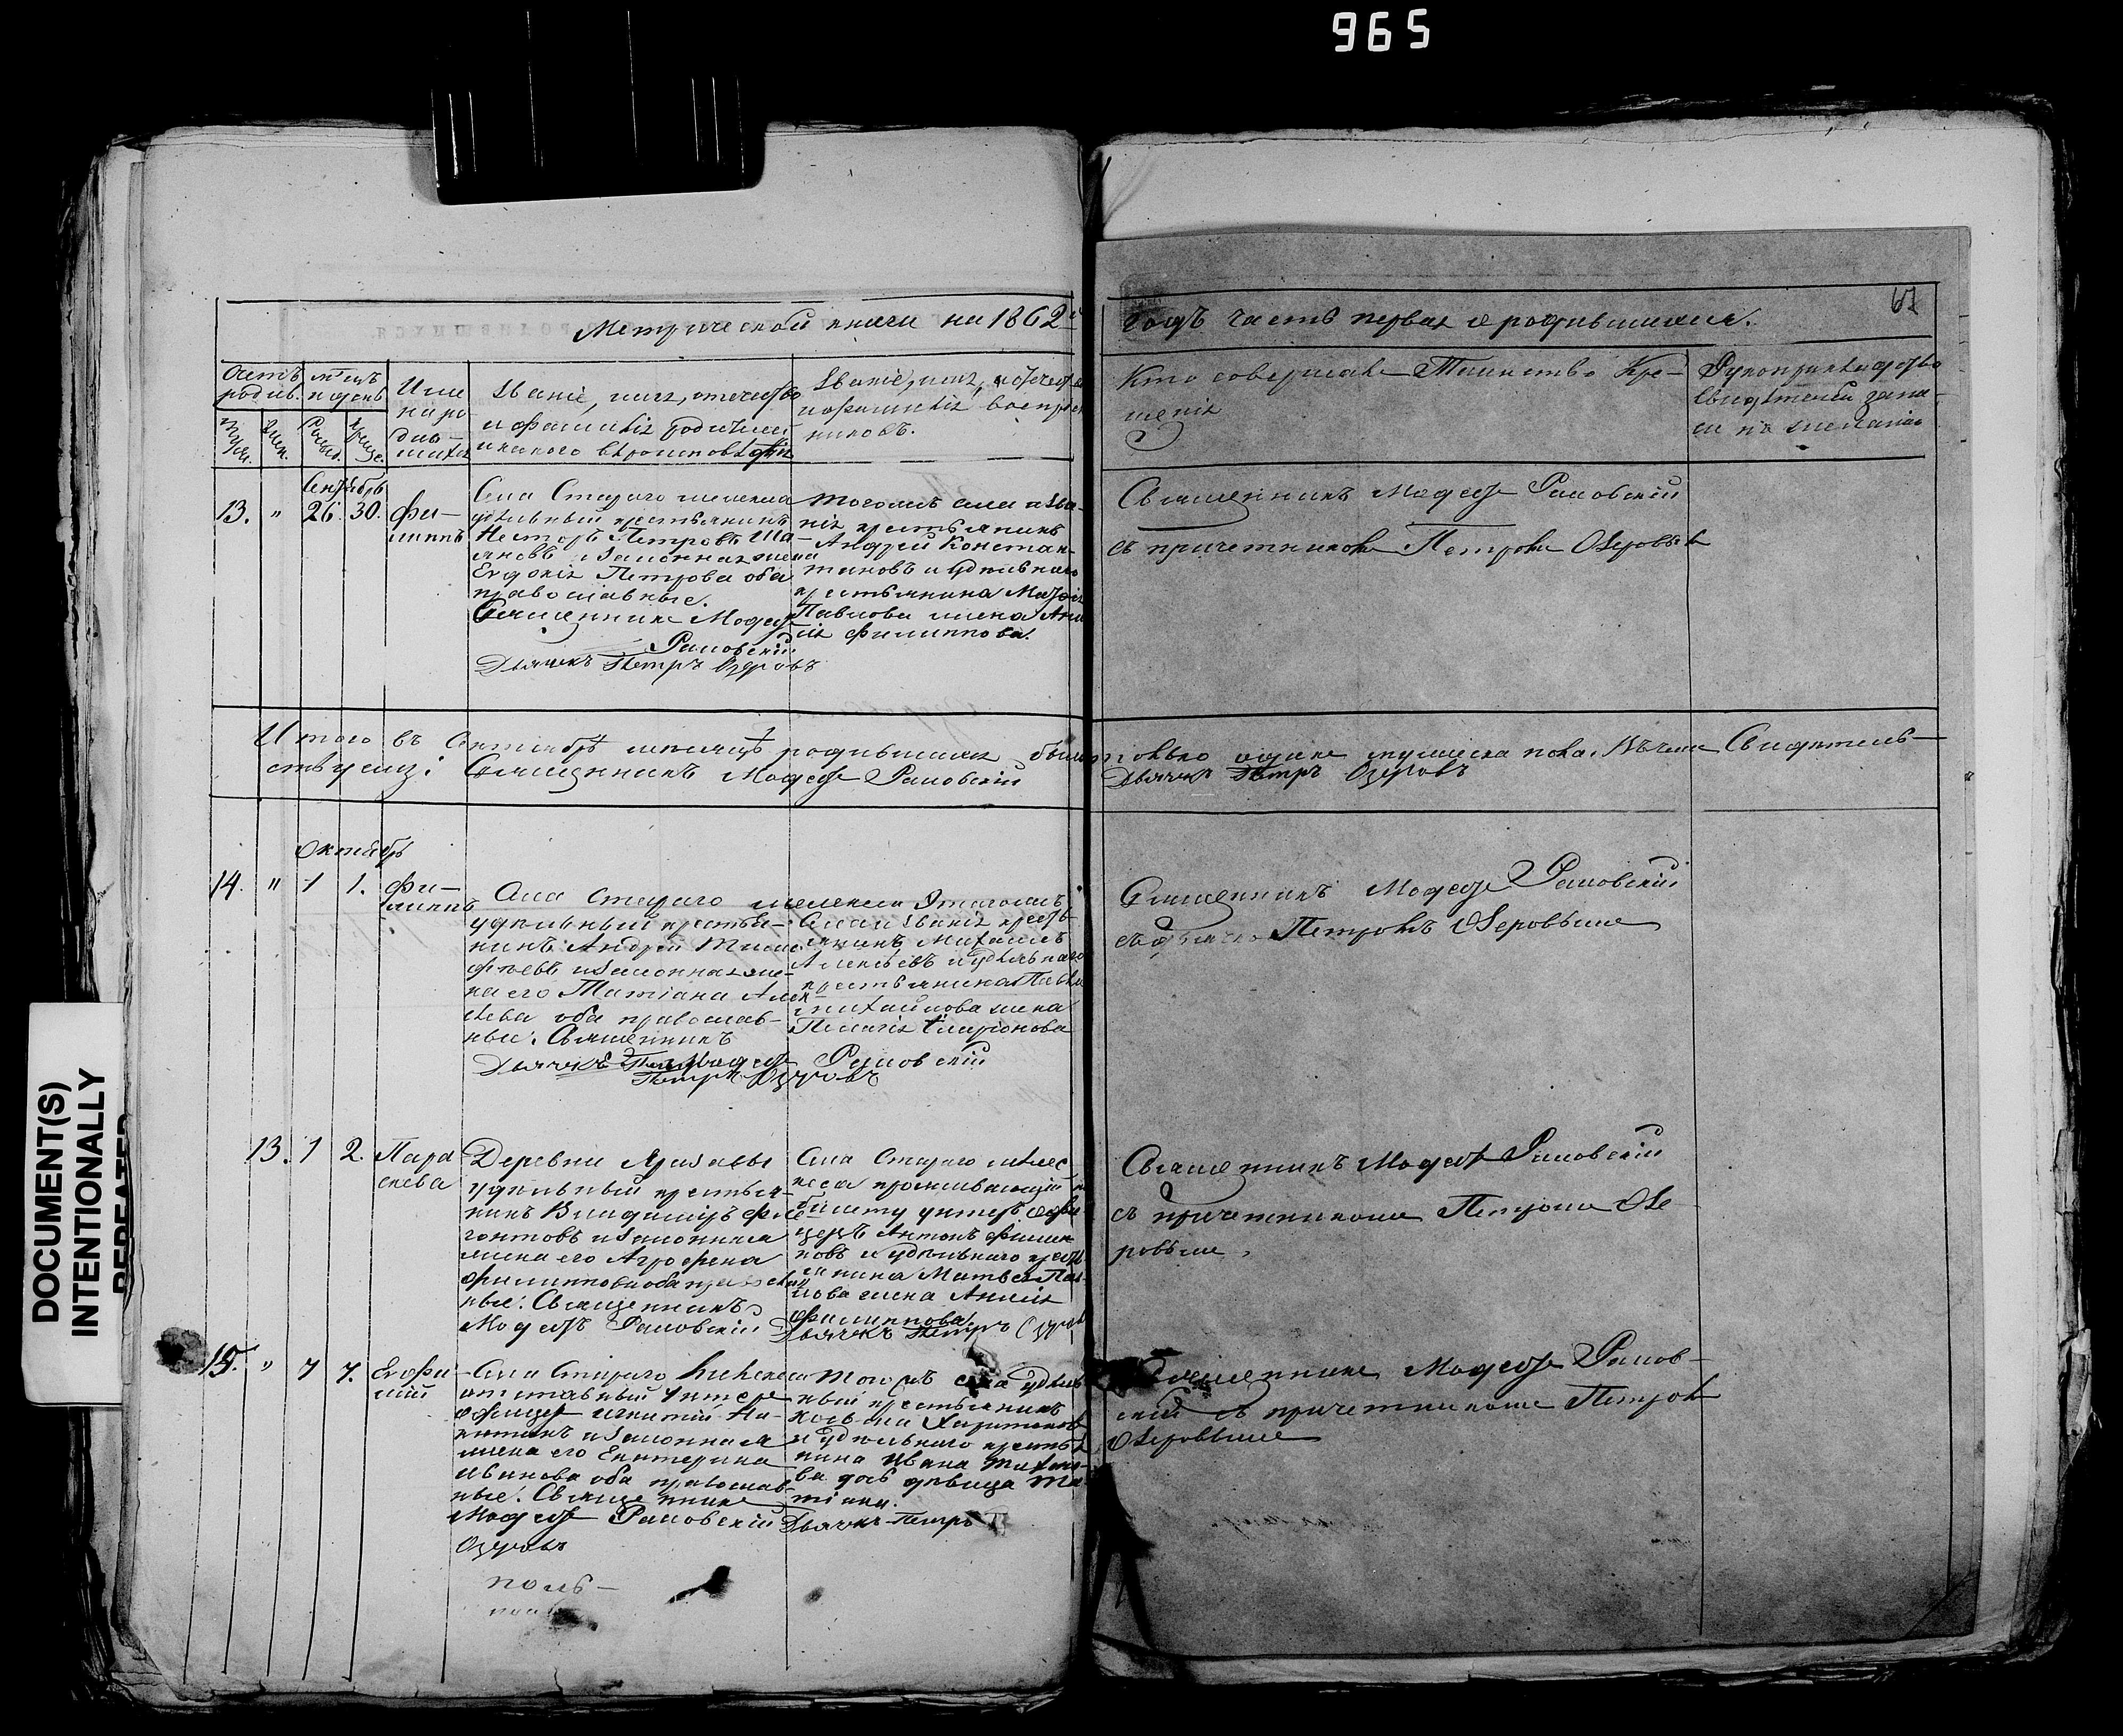 965
67
Метрической книги на 1862й
годъ часть первая о родившихся.
Счетъ родив.
мѣсяцъ и день
Муж.
Жен.
Рожд.
Крещ.
Имена родившихся
Званіе, имя, отчество
и фамилія родителей
и какого вѣроисповѣданія
Званіе, имя, отчество
и фамилія воспріем
никовъ.
Кто совершалъ Таинство Кре-
щенія
Рукоприкладство
свидѣтелей запи-
си по желанію
Сентябрь
13. " 26. 30. Фи-
липпъ
Села Стараго
удѣльный крестьянинъ
Несторъ Петровъ
и законная жена
Евдокія Петрова оба
православные.
Священникъ Модестъ
Рамовскій
Дьячекъ Петръ Озеровъ
Тогожъ села и зва-
нія крестьянинъ
Андрей Констан-
тиновъ и удѣльнаго
крестьянина
Павлова жена
Филиппова.
Священникъ Модестъ Рамовскій
съ причетникомъ Петромъ Озеровымъ
Итого въ Сентябрѣ мѣсяцѣ родившихся было
только одинъ мужеска пола. Въ чемъ Свидѣтель-
ствуемъ: Священникъ Модестъ Рамовскій
Дьячекъ Петръ Озеровъ
Октябрь
14. " 1 1. Фи-
липпъ
Села Стараго
удѣльный крестья-
нинъ Андрей Тимо
феевъ и законная же-
на его Татіана Алек
сѣева оба православ-
ные. Священникъ
Модестъ Рамовскій
Дьячекъ
Петръ Озеровъ
Тогожъ
села и званія крестья
янинъ Михаилъ
Алексѣевъ и удѣльнаго
крестьянина Павла
Михайлова жена
Пелагія Иларіонова
Священникъ Модестъ Рамовскій
съ дьячкомъ Петромъ Озеровымъ
13. 1 2. Пара
скева
Деревни
удѣльный крестья-
нинъ Владиміръ
и законная
жена его Агрофена
Филиппова оба православ
ные. Священникъ
Модестъ Рамовскій
Села Стараго
проживающій по
билету унтеръ офи
церъ Антонъ Филип
повъ и удѣльнаго кресть
янина Матвея Пав-
лова жена
Филиппова.
Дьячекъ Петръ Озеровъ
Священникъ Модестъ Рамовскій
съ причетникомъ Петромъ Озе
ровымъ.
15. " 7 7. Евфи
мій
Села Стараго
отставный Унтеръ
офицеръ Игнатій
и законная
жена его Екатерина
Иванова оба православ
ные. Священникъ
Модестъ Рамовскій
Озеровъ
Тогожъ села удѣль
ный крестьянинъ
Косьма Харитоновъ
и удѣльнаго крестья
нина Ивана Тихоно-
ва дочь дѣвица Та-
тіана.
Дьячекъ Петръ
Священникъ Модестъ Рамов-
скій съ причетникомъ Петромъ
Озеровымъ
DOCUMENT(S)
INTENTIONALLY
REPEATED